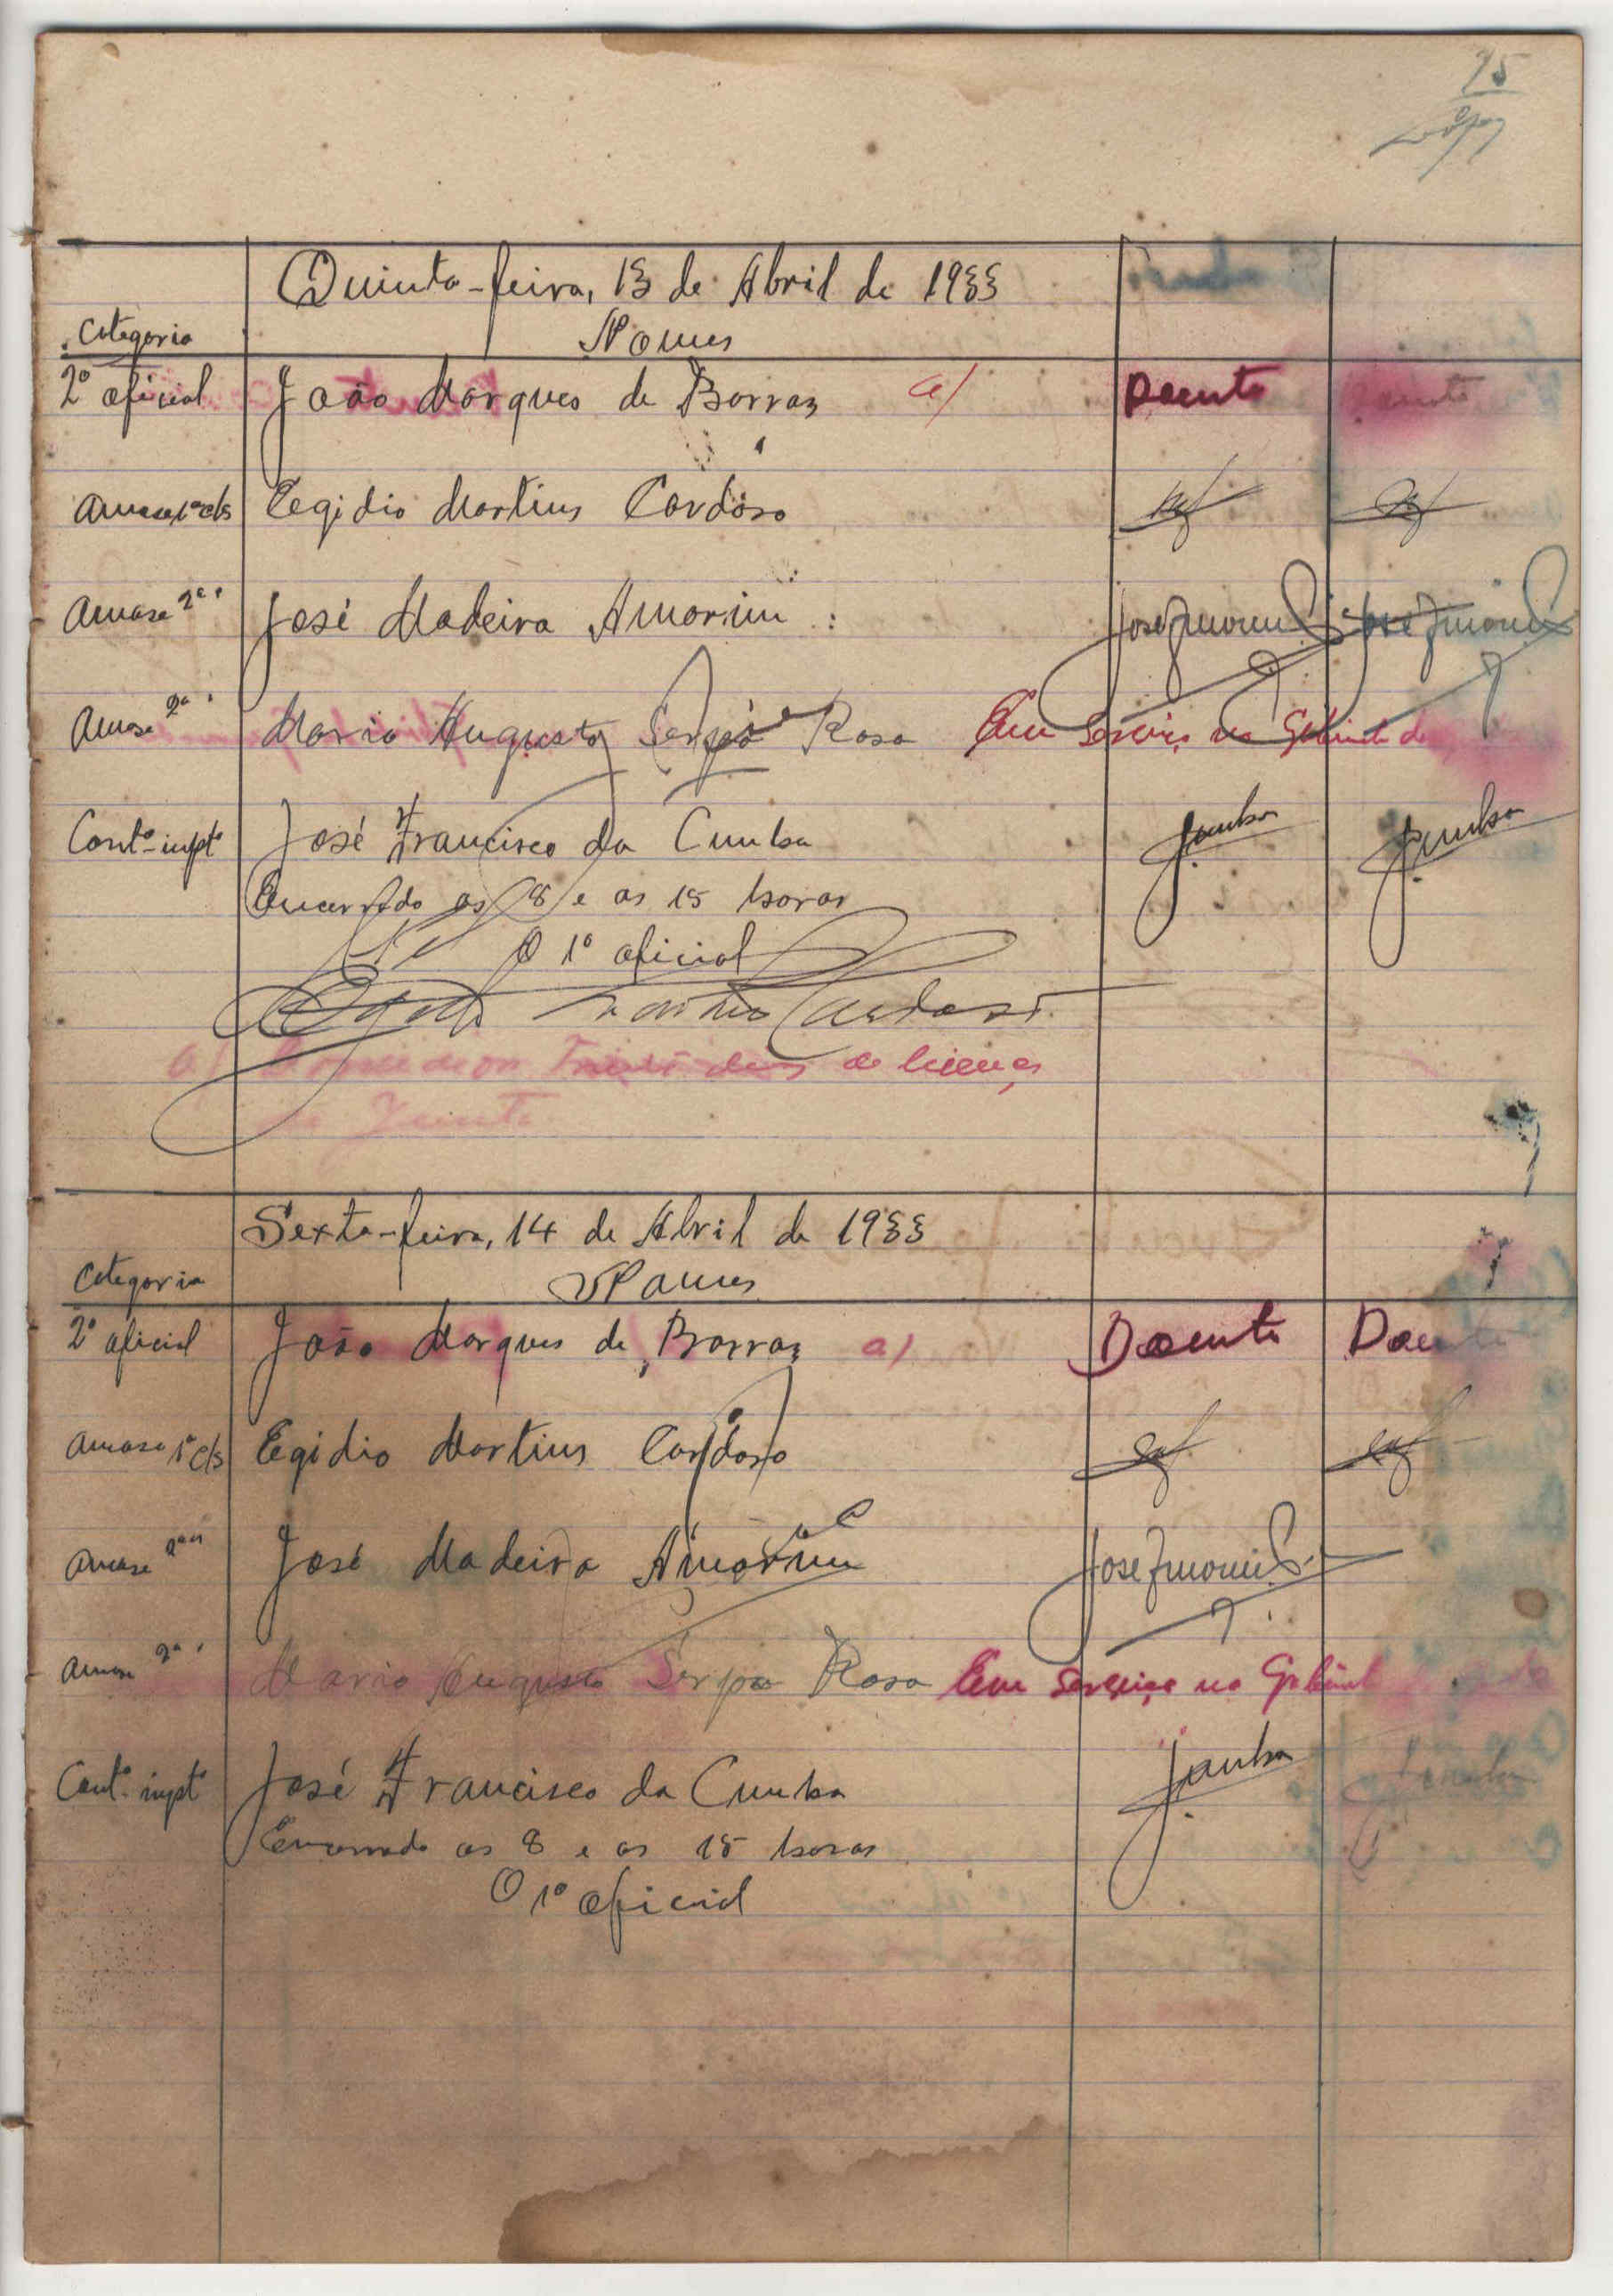 15
Quinta-feira, 13 de Abril de 1933
Categoria Nomes
2º oficial João Marques de Barros a) Doente
Amase 1ª cls Egidio Martins Cardoso
Amase 2ª " José Madeira Amorim
Amase 2ª " Mario Augusto Serpa Rosa Em serviço no Gabinete do
Contº impº José Francisco da Cunha JCunha JCunha
Encerrado as 8 e as 15 horas
O 1º oficial
Egidio Martins Cardoso
a) trinta dias de licença
Junta
Sexta-feira, 14 de Abril de 1933
Categoria Nomes
2º oficial João Marques de Barros a) Doente Doente
Amase 1ª cls Egidio Martins Cardoso
Amase 2ª " José Madeira Amorim
Amase 2ª " Mario Augusto Serpa Rosa Em serviço no Gabinet
Contº impº José Francisco da Cunha JCunha
Encerrado as 8 e as 15 horas
O 1º oficial